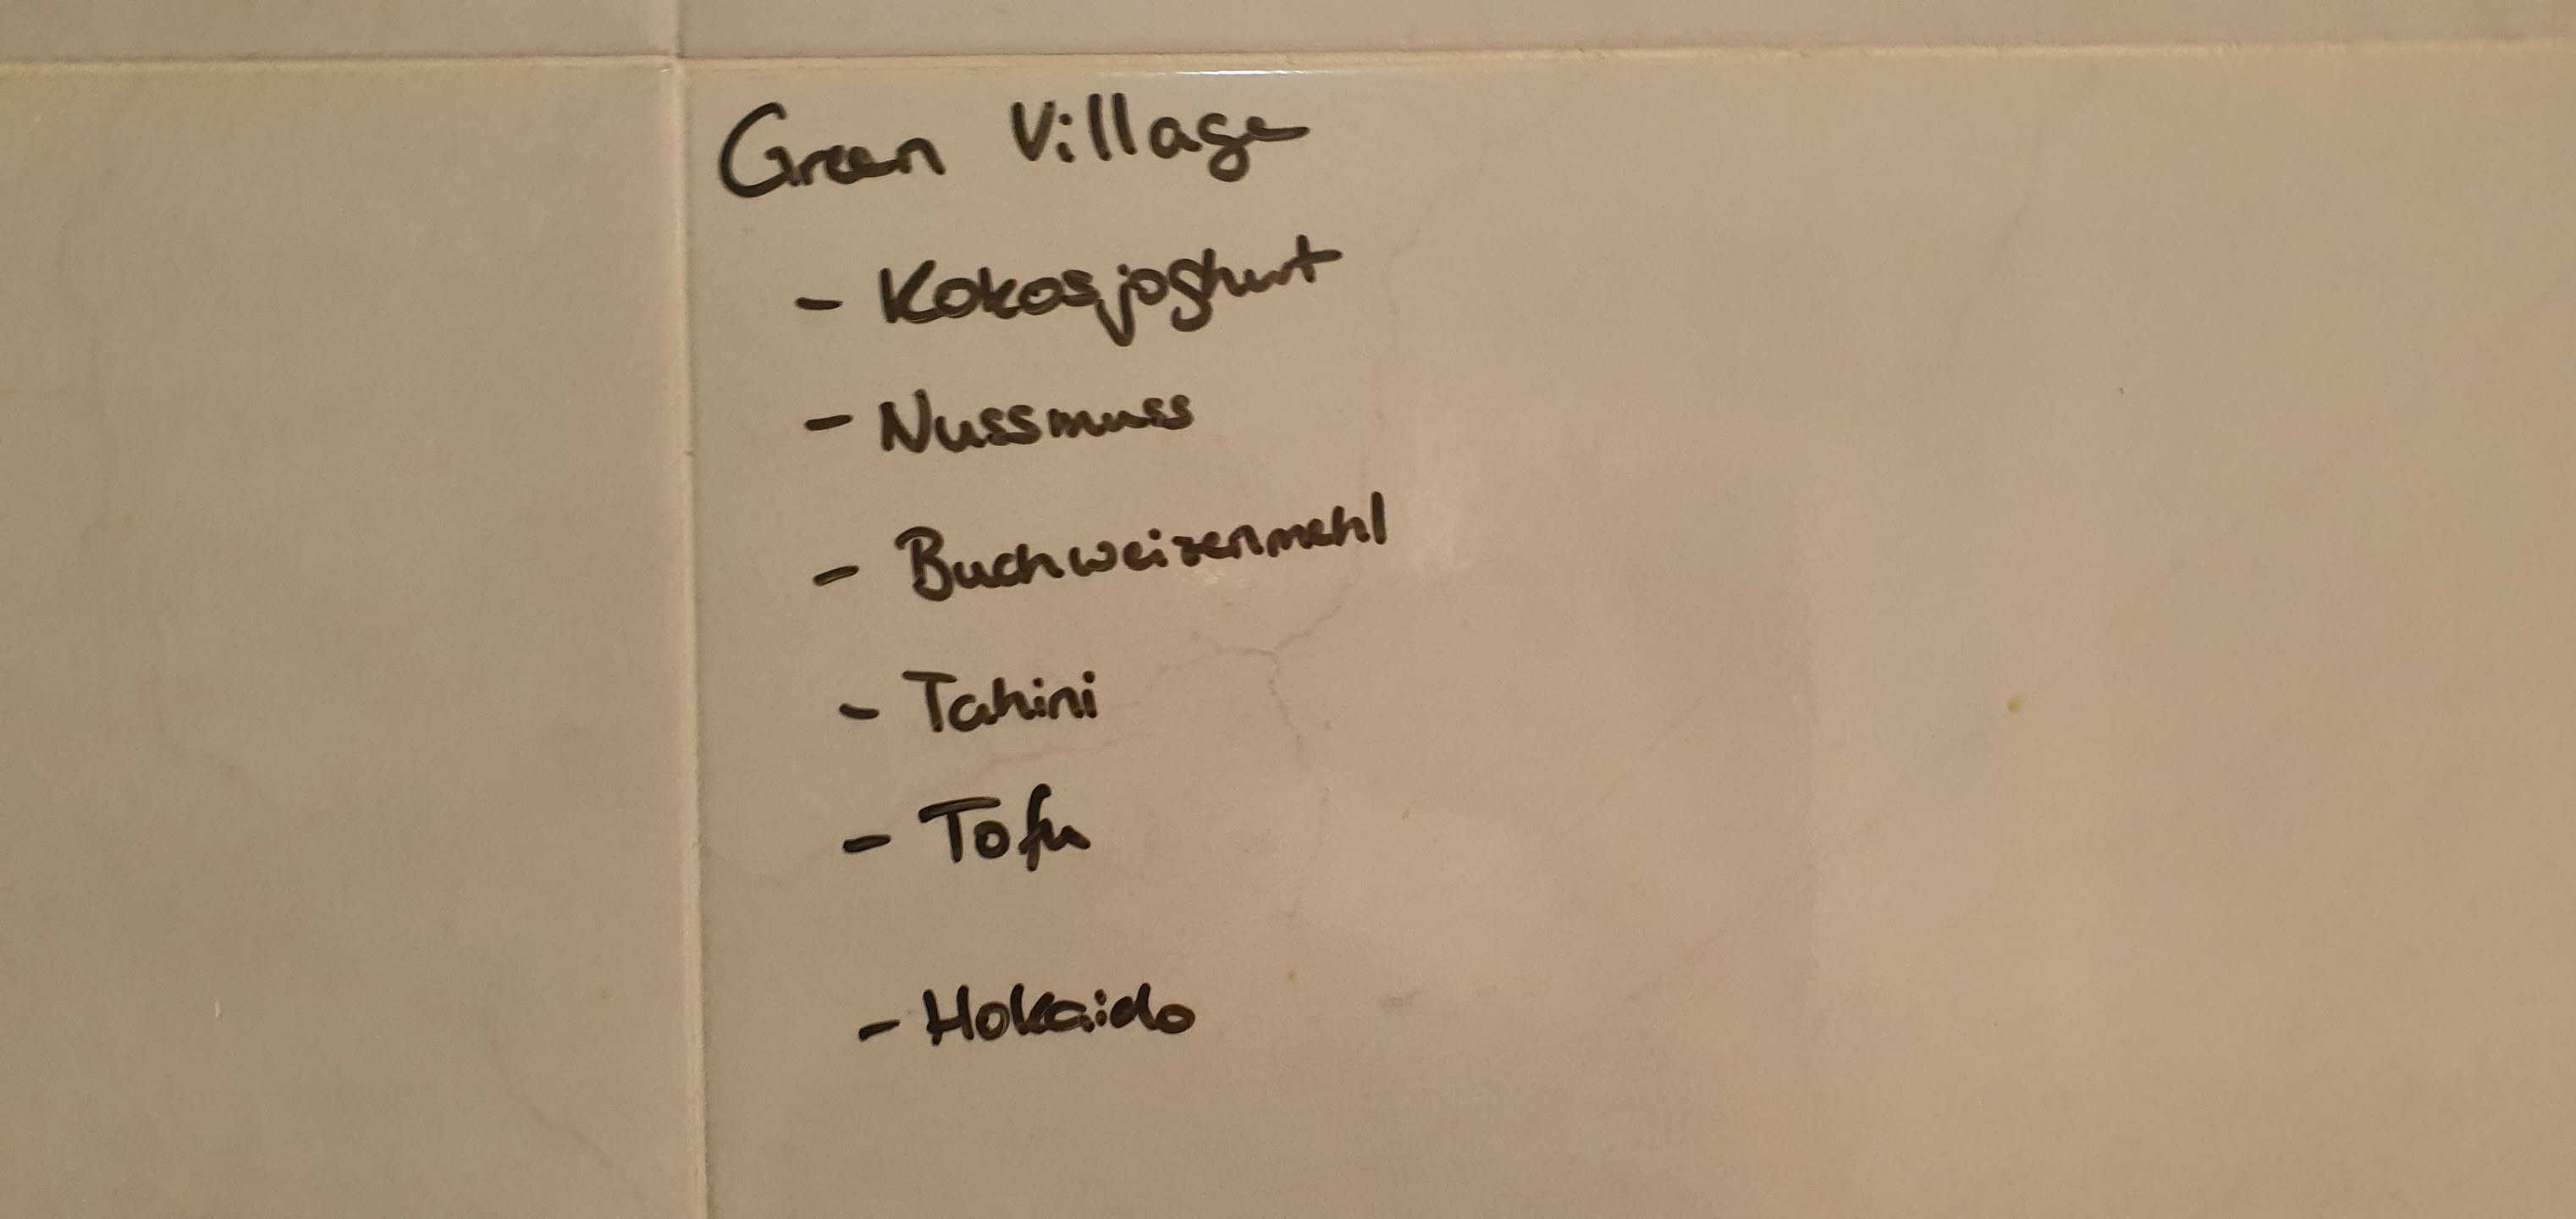 Green Village
- Kokosjoghurt
- Nussmuss
- Buchweizenmehl
- Tahini
- Tofu
- Hokaido